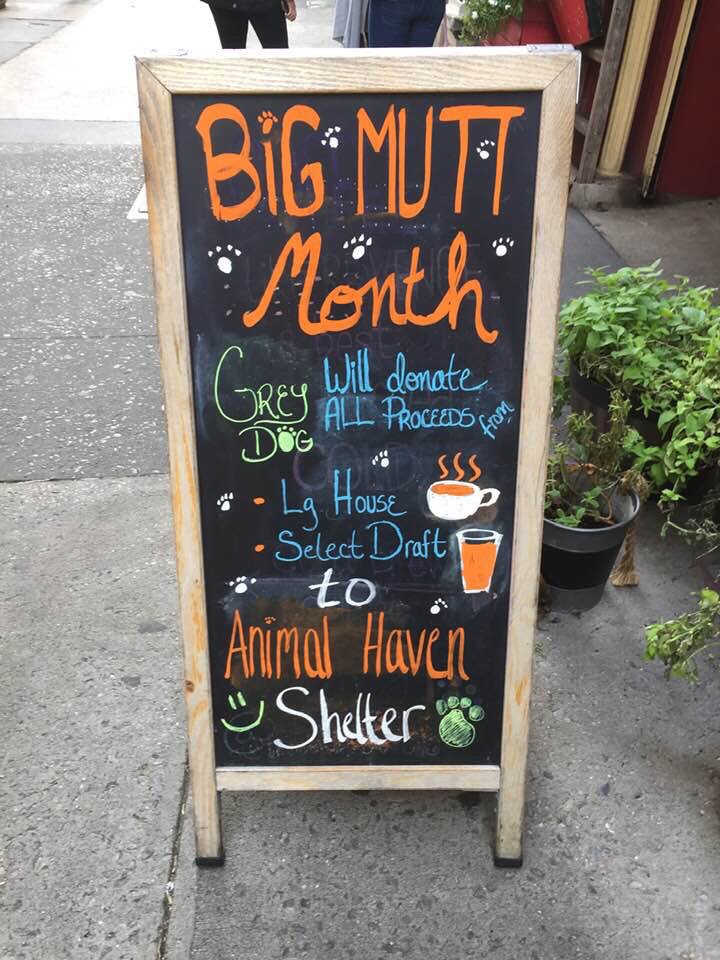 BiG MUTT
Month
GREY DOG
Will donate
ALL PROCEEDS from
• Lg House
• Select Draft
to
Animal Haven
Shelter